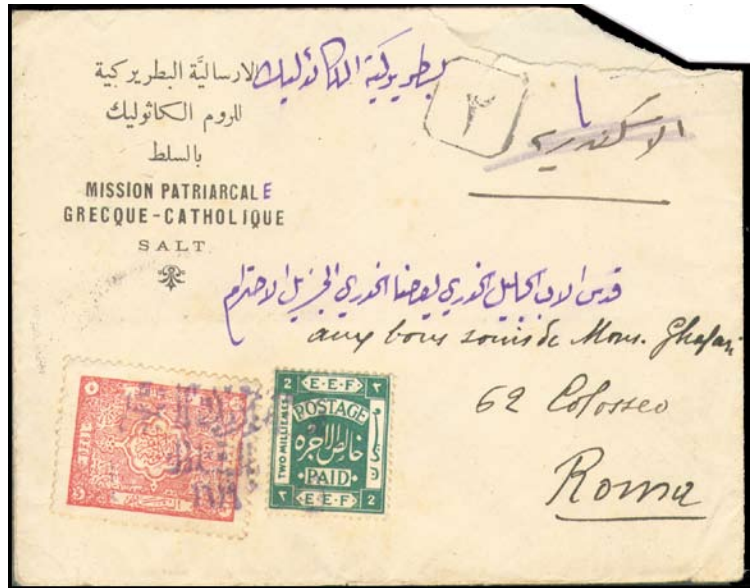 الارسالية البطريركية
للروم الكاثوليك
بالسلط
MISSION PATRIARCALE
GRECQUE-CATHOLIQUE
SALT
بطريركية الكاثوليك
٢
الاسكندرية
قدس الاب الجليل الخوري يوحنا الخوري الجزيل الاحترام
aux bons soins de Mons.
62 Colosseo
Roma
٥
2 E.E.F ٢
POSTAGE
خالص الاجره
PAID
TWO MILLIEMES
٢ E.E.F 2